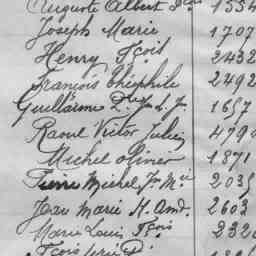 Auguste Albert 1554
Joseph Marie 1707
Henry Fçois 2432
François Théophile 2492
Guillaume 1657
Raoul Victor Julien 4794
Michel Olivier 1871
Pierre Michel Fm Mie 2035
Jean Marie H. Amd. 2603
Marie Louis Fçois 232
Fçois